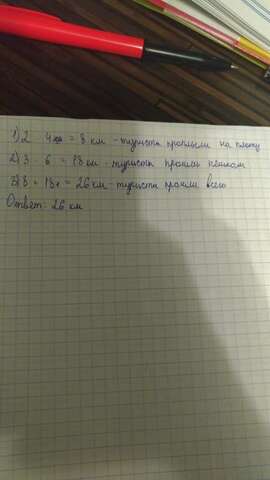 1) 2 · 4 = 8 км - туристы проплыли на плоту
2) 3 · 6 = 18 км - туристы прошли пешком
3) 8 + 18 = 26 км - туристы прошли всего
Ответ: 26 км